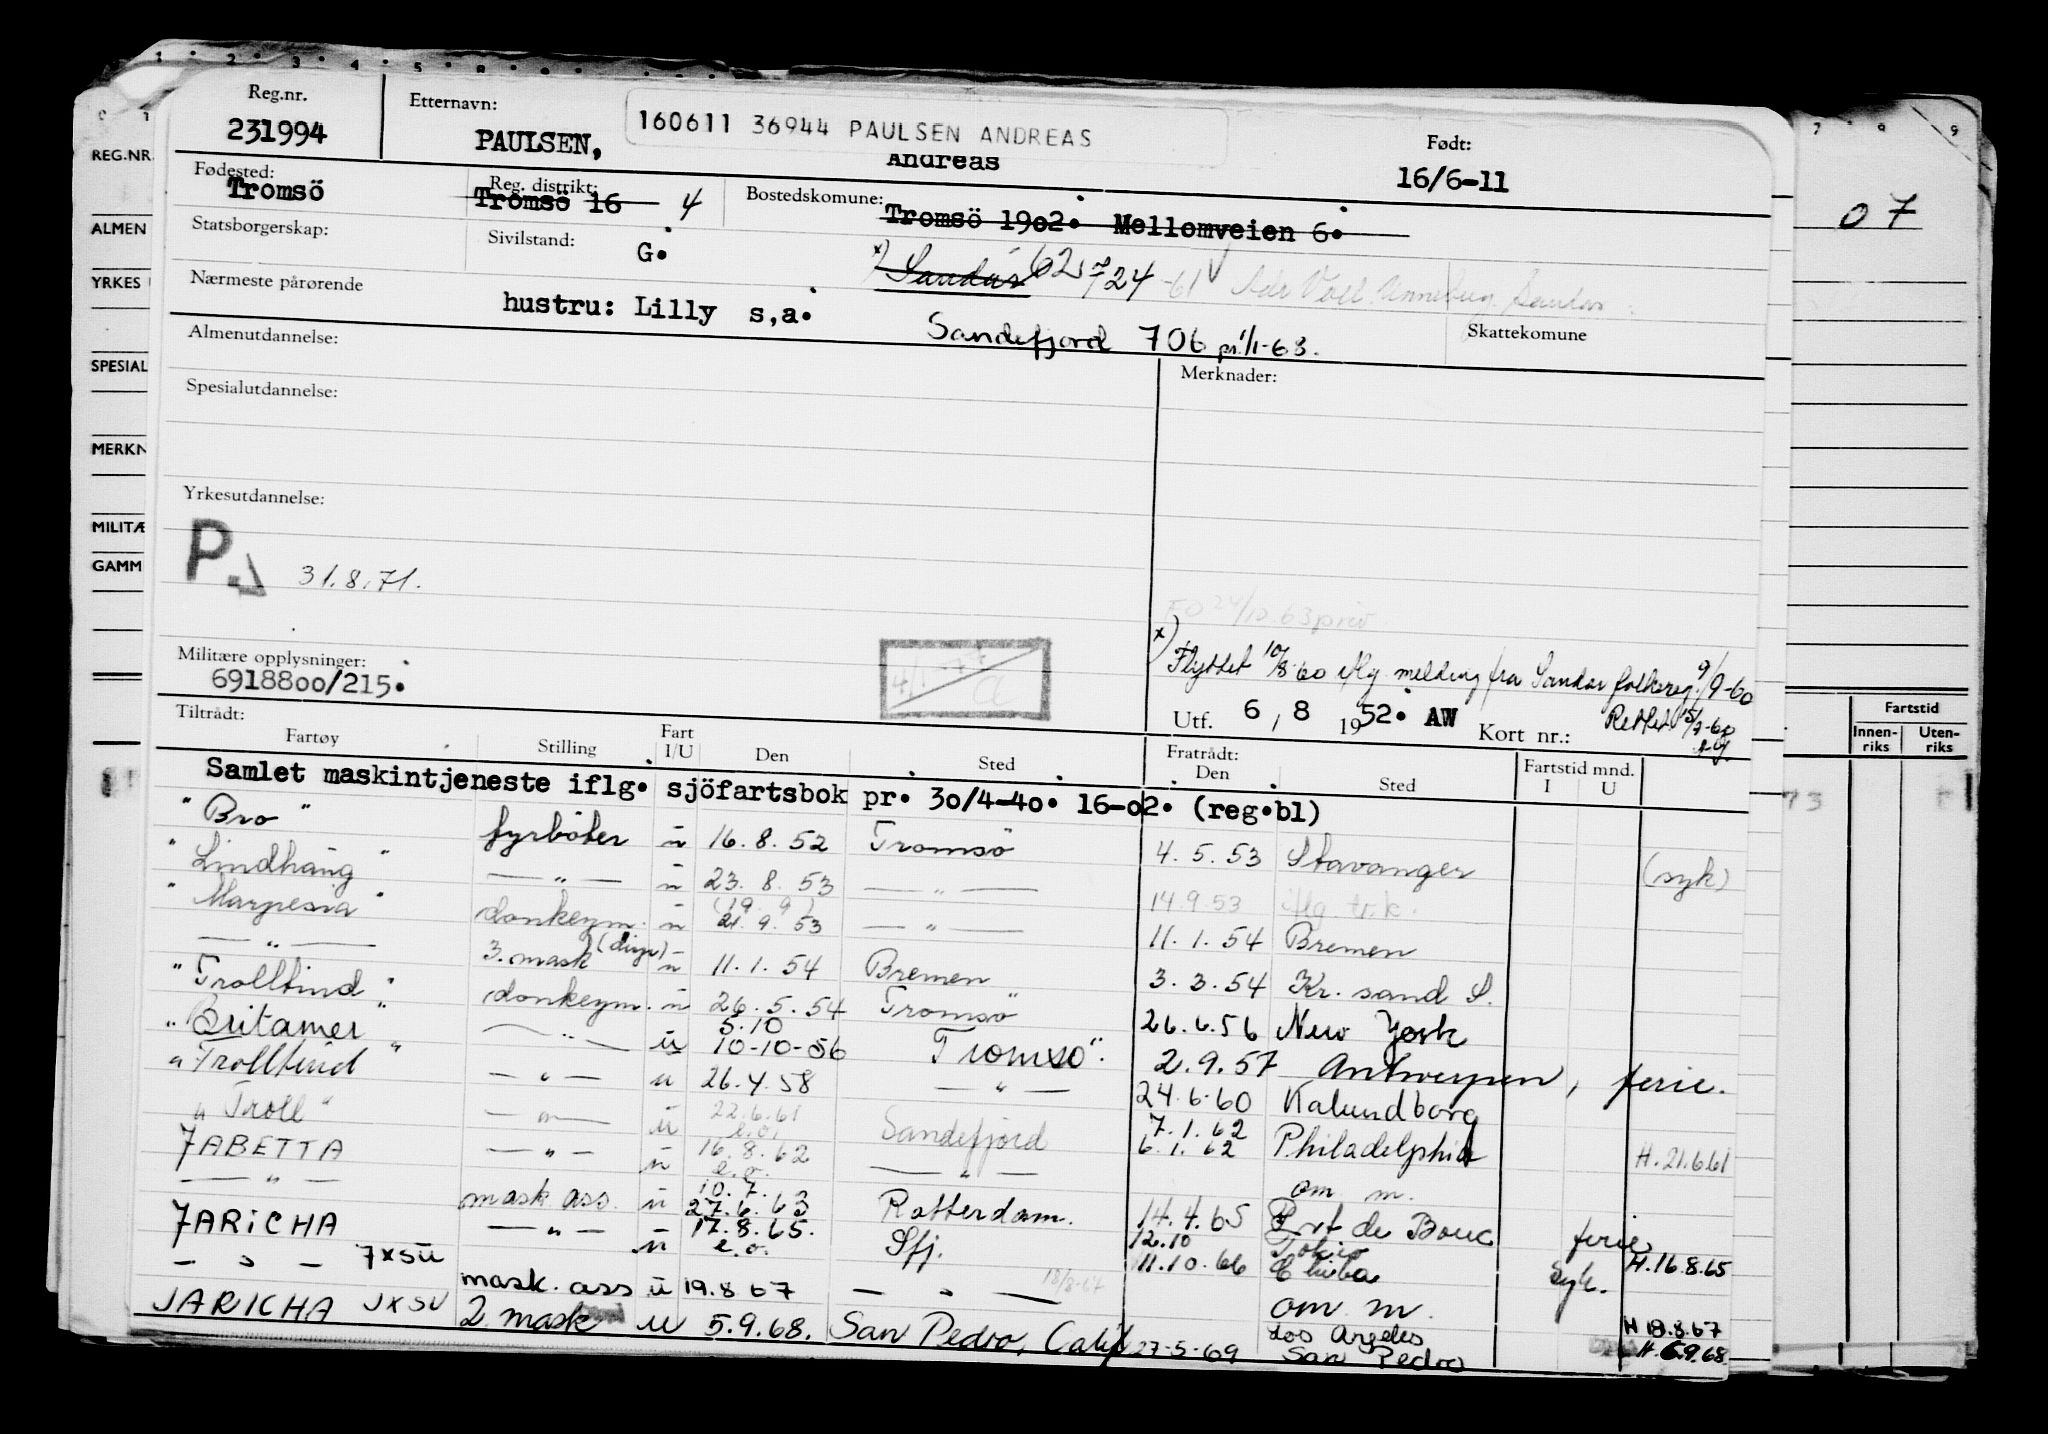 Reg.nr. Etternavn: 160611 36944 PAULSEN ANDREAS Født:
231994 PAULSEN, Andreas 16/6-11
Fødested: Tromsö Reg. distrikt: Tromsö 16 4 Bostedskomune: Tromsö 1902. Mellomveien 6.
Statsborgerskap: Sivilstand: G. x) Sandar 62 724 -61
Nærmeste pårørende hustru: Lilly s,a. Sandefjord 706 pr. 1/1-63. Skattekomune
Almenutdannelse: Merknader:
Spesialutdannelse:
Yrkesutdannelse:
P 31.8.71.
FO 24/10 63 priv.
x) Flyttet 10/8-60 iflg melding fra Sandar folkereg. 9/9-60
Militære opplysninger: 6918800/215.
Utf. 6,8 1952. AW Kort nr.: Rettet 15/9-60
Tiltrådt: Fratrådt: Fartstid mnd.
Fartøy Stilling Fart I/U Den Sted Den Sted I U
Samlet maskintjeneste iflg. sjöfartsbok pr. 30/4-40. 16-02. (reg.bl)
"Bro" fyrböter u 16.8.52 Tromsö 4.5.53 Stavanger (syk)
"Lindhaug" — " — u 23.8.53 — " — 14.9.53 iflg. t.k.
"Marpesia" donkeym. u (19.9) 21.9.53 — " — 11.1.54 Bremen
— " — 3. mask (disp) u 11.1.54 Bremen 3.3.54 Kr. sand S.
"Trolltind" donkeym. u 26.5.54 Tromsö 26.6.56 New York
"Britamer" — " — u 5.10 10-10-56 Tromsö. 2.9.57 Antwerpen, ferie.
"Trolltind — " — u 26.4.58 — " — 24.6.60 Kalundborg
"Troll" — " — u 22.6.61 e.o. Sandefjord 7.1.62 6.1.62 Philadelphia H.21.6.61
JABETTA — " — u 16.8.62 e.o. — " — om m.
— " — mask ass. u 10.7. 27.6.63 Rotterdam. 14.4.65 Port de Bouc ferie
JARICHA — " — u 17.8.65. e.o. Sfj. 12.10 11.10.66 Tokio Chiba syk. H.16.8.65
— " — JXSU mask. ass u 19.8.67 — " — 18/8-67 om m. H 18.8.67
JARICHA JXSU 2. mask u 5.9.68. San Pedro, Calif 27-5-69 Los Angeles San Pedro H. 5.9.68.
REG.NR.
ALMEN
YRKES
SPESIAL
MERKN
MILITÆ
GAMM
07
Fartstid
Innen-riks Uten-riks
73